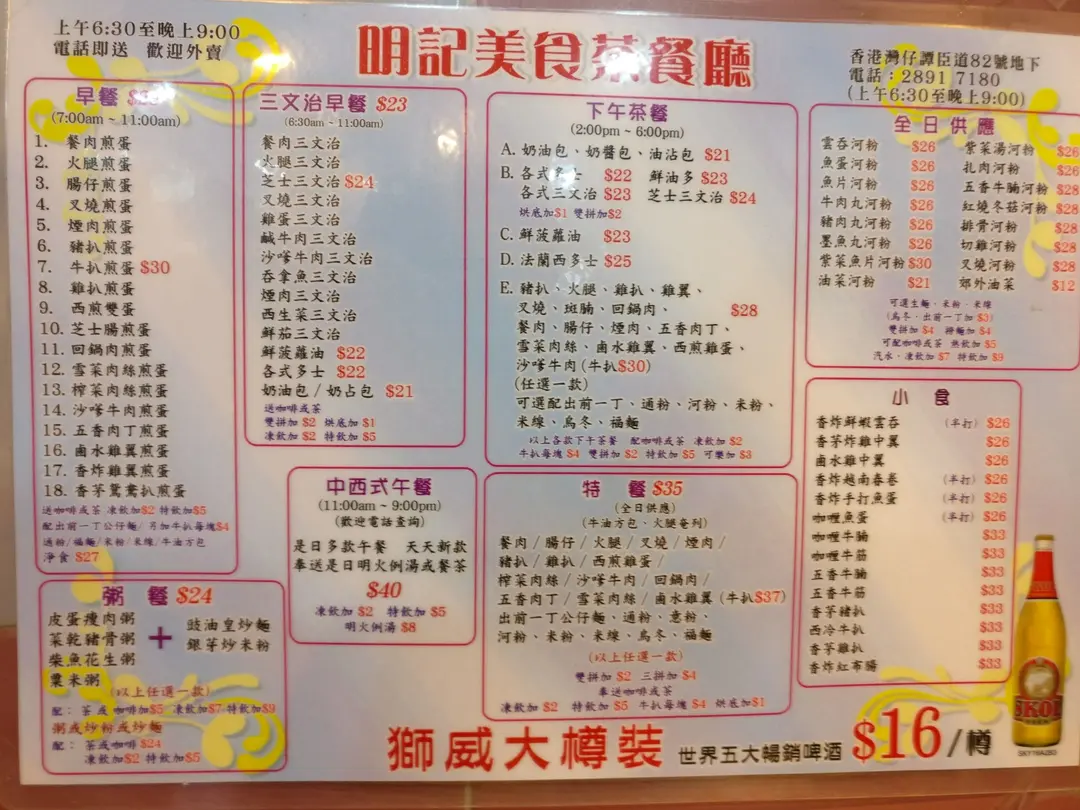 上午6:30至晚上9:00
電話即送 歡迎外賣
明記美食茶餐廳
香港灣仔譚臣道82號地下
電話：2891 7180
(上午6:30至晚上9:00)
早餐
(7:00am ~ 11:00am)
1. 餐肉煎蛋
2. 火腿煎蛋
3. 腸仔煎蛋
4. 叉燒煎蛋
5. 煙肉煎蛋
6. 豬扒煎蛋
7. 牛扒煎蛋 $30
8. 雞扒煎蛋
9. 西煎雙蛋
10. 芝士腸煎蛋
11. 回鍋肉煎蛋
12. 雪菜肉絲煎蛋
13. 榨菜肉絲煎蛋
14. 沙嗲牛肉煎蛋
15. 五香肉丁煎蛋
16. 鹵水雞翼煎蛋
17. 香炸雞翼煎蛋
18. 香茅鴛鴦扒煎蛋
送咖啡或茶 凍飲加$2 特飲加$5
配出前一丁公仔麵/ 另加牛扒每塊$4
通粉/福麵/米粉/米線/牛油方包
淨食 $27
粥 餐 $24
皮蛋瘦肉粥
菜乾豬骨粥
柴魚花生粥
粟米粥
+
豉油皇炒麵
銀芽炒米粉
(以上任選一款)
配： 茶或咖啡加$5 凍飲加$7 特飲加$9
粥或炒粉或炒麵
配： 茶或咖啡 $24
凍飲加$2 特飲加$5
三文治早餐 $23
(6:30am ~ 11:00am)
餐肉三文治
火腿三文治
芝士三文治 $24
叉燒三文治
雞蛋三文治
鹹牛肉三文治
沙嗲牛肉三文治
吞拿魚三文治
煙肉三文治
西生菜三文治
鮮茄三文治
鮮菠蘿油 $22
各式多士 $22
奶油包 / 奶占包 $21
送咖啡或茶
雙拼加 $2 烘底加 $1
凍飲加 $2 特飲加 $5
中西式午餐
(11:00am ~ 9:00pm)
(歡迎電話查詢)
是日多款午餐 天天新款
奉送是日明火例湯或餐茶
$40
凍飲加 $2 特飲加 $5
明火例湯 $8
下午茶餐
(2:00pm ~ 6:00pm)
A. 奶油包、奶醬包、油沾包 $21
B. 各式多士 $22 鮮油多 $23
各式三文治 $23 芝士三文治 $24
烘底加$1 雙拼加$2
C. 鮮菠蘿油 $23
D. 法蘭西多士 $25
E. 豬扒、火腿、雞扒、雞翼、
叉燒、斑腩、回鍋肉、 $28
餐肉、腸仔、煙肉、五香肉丁、
雪菜肉絲、鹵水雞翼、西煎雞蛋、
沙嗲牛肉 (牛扒$30)
(任選一款)
可選配出前一丁、通粉、河粉、米粉、
米線、烏冬、福麵
以上各款下午茶餐 配咖啡或茶 凍飲加 $2
牛扒每塊 $4 雙拼加 $2 特飲加 $5 可樂加 $3
特 餐 $35
(全日供應)
(牛油方包、火腿奄列)
餐肉 / 腸仔 / 火腿 / 叉燒 / 煙肉 /
豬扒 / 雞扒 / 西煎雞蛋 /
榨菜肉絲 / 沙嗲牛肉 / 回鍋肉 /
五香肉丁 / 雪菜肉絲 / 鹵水雞翼 (牛扒$37)
出前一丁公仔麵、通粉、意粉、
河粉、米粉、米線、烏冬、福麵
(以上任選一款)
雙拼加 $2 三拼加 $4
奉送咖啡或茶
凍飲加 $2 特飲加 $5 牛扒每塊 $4 烘底加$1
全日供應
雲吞河粉 $26 紫菜湯河粉 $26
魚蛋河粉 $26 扎肉河粉 $26
魚片河粉 $26 五香牛腩河粉 $28
牛肉丸河粉 $26 紅燒冬菇河粉 $28
豬肉丸河粉 $26 排骨河粉 $28
墨魚丸河粉 $26 切雞河粉 $28
紫菜魚片河粉 $30 叉燒河粉 $28
油菜河粉 $21 郊外油菜 $12
可選生麵、米粉、米線
(烏冬、出前一丁加 $3)
雙拼加 $4 撈麵加 $4
可配咖啡或茶 熱飲加 $5
汽水、凍飲加 $7 特飲加 $9
小 食
香炸鮮蝦雲吞 (半打) $26
香茅炸雞中翼 $26
鹵水雞中翼 $26
香炸越南春卷 (半打) $26
香炸手打魚蛋 (半打) $26
咖喱魚蛋 (半打) $26
咖喱牛腩 $33
咖喱牛筋 $33
五香牛腩 $33
五香牛筋 $33
香茅豬扒 $33
西冷牛扒 $33
香茅雞扒 $33
香炸紅布腸 $33
獅威大樽裝 世界五大暢銷啤酒 $16/樽
SKOL